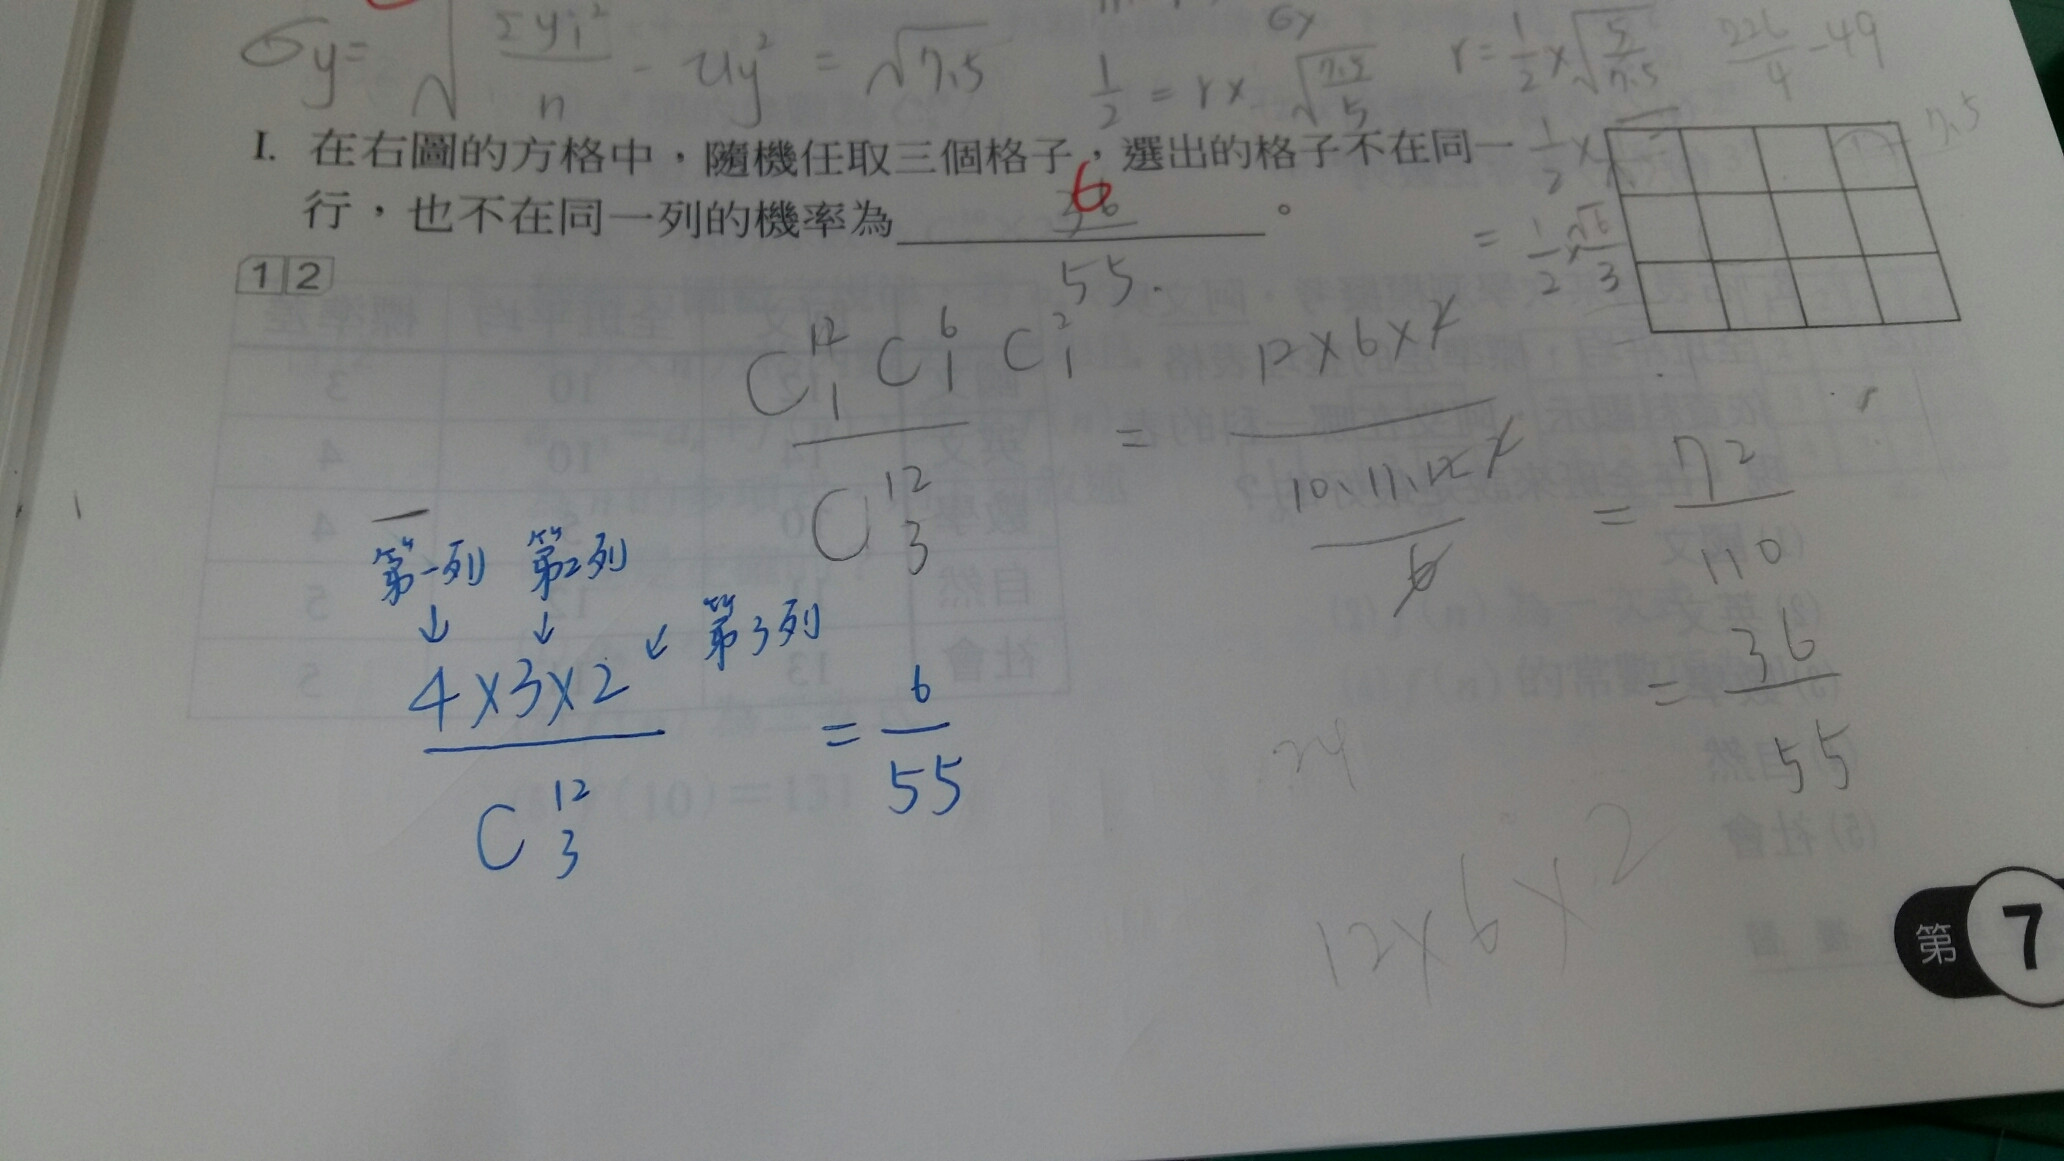 σy = √(Σyi²/n - uy²) = √7.5
1/2 = r × √(7.5/5)
r = 1/2 × √(5/7.5)
226/4 - 49
7.5
I. 在右圖的方格中，隨機任取三個格子，選出的格子不在同一
行，也不在同一列的機率為 36/55 。
6
= 1/2 × √6/3
1 2
C¹²₁ C⁶₁ C²₁ / C¹²₃ = 12×6×2 / (10.11.12×2 / 6) = 72/110
= 36/55
第一列 第2列
↓ ↓ ↙ 第3列
4×3×2 / C¹²₃ = 6/55
24
12×6×2
第 7